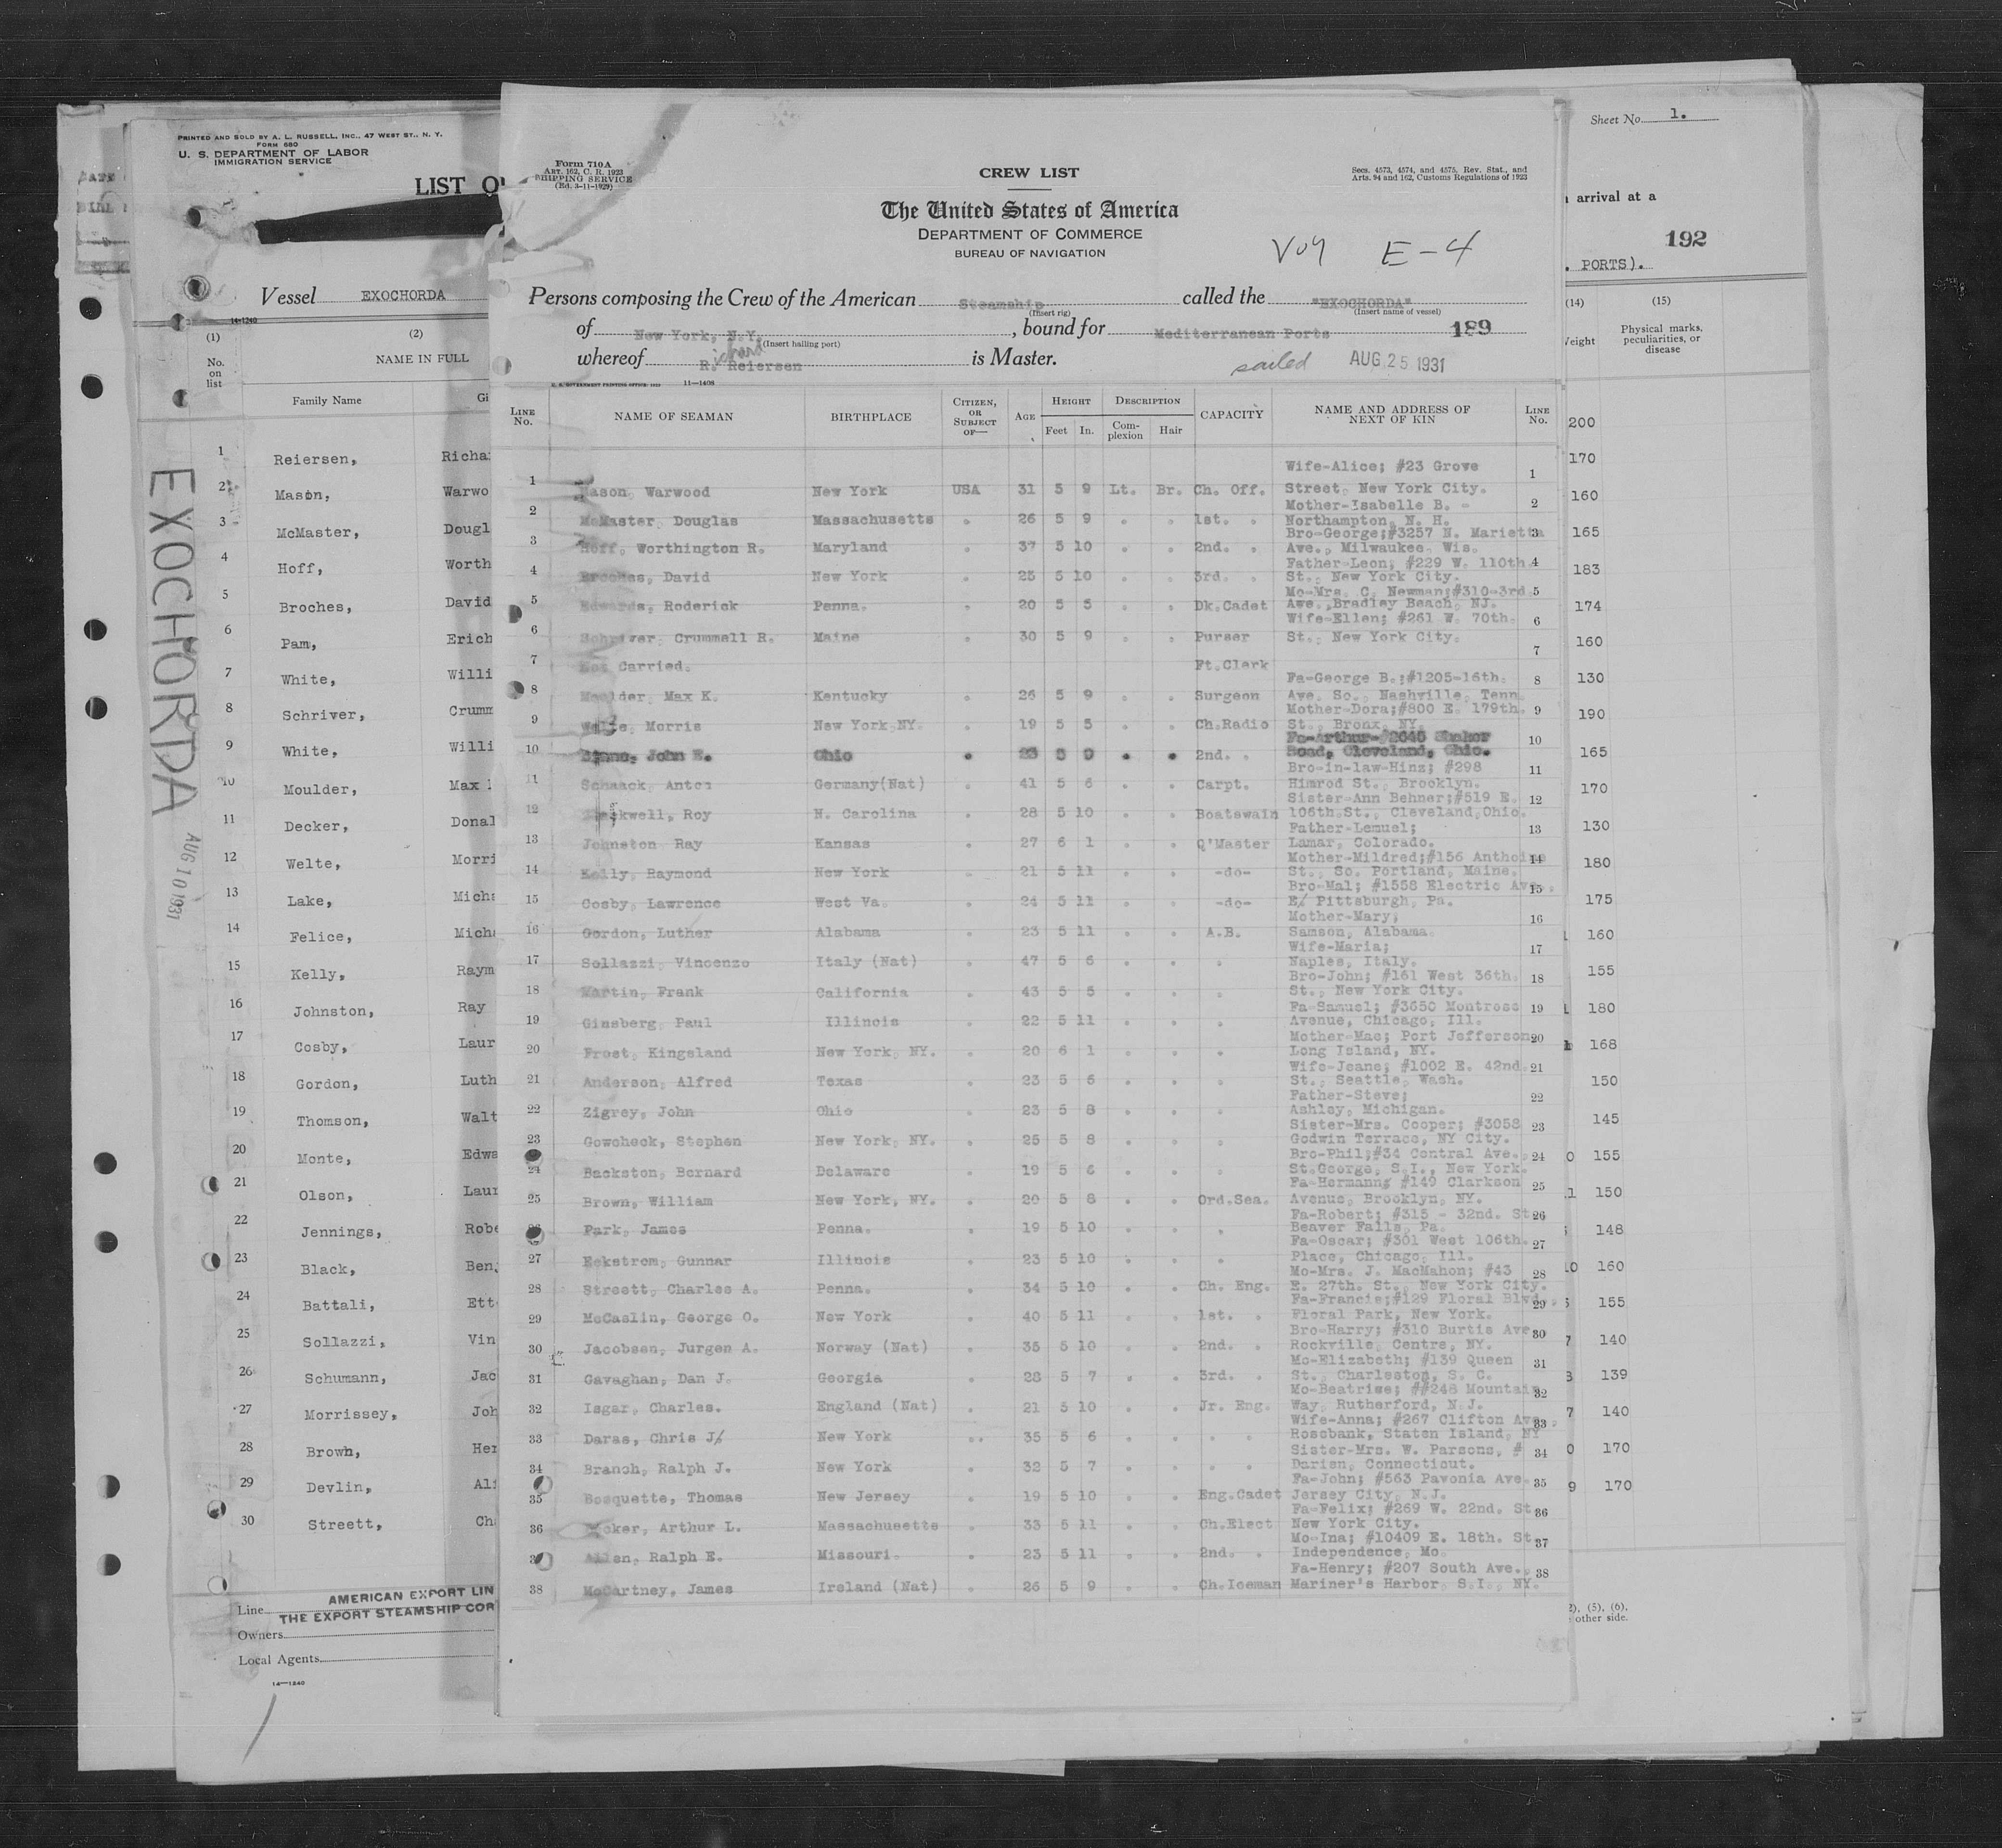 PRINTED AND SOLD BY A. L. RUSSELL, INC., 47 WEST ST., N. Y.
FORM 680
U. S. DEPARTMENT OF LABOR
IMMIGRATION SERVICE
LIST O
Vessel EXOCHORDA
14-1240
(1) (2)
No. on list NAME IN FULL
Family Name Gi
1 Reiersen, Richa
2 Mason, Warwo
3 McMaster, Dougl
4 Hoff, Worth
5 Broches, David
6 Pam, Erich
7 White, Willi
8 Schriver, Crumm
9 White, Willi
10 Moulder, Max
11 Decker, Donal
12 Welte, Morri
13 Lake, Micha
14 Felice, Mich
15 Kelly, Raym
16 Johnston, Ray
17 Cosby, Laur
18 Gordon, Luth
19 Thomson, Walt
20 Monte, Edwa
21 Olson, Laur
22 Jennings, Robe
23 Black, Ben
24 Battali, Ett
25 Sollazzi, Vin
26 Schumann, Jac
27 Morrissey, Joh
28 Brown, Her
29 Devlin, Ali
30 Streett, Ch
EXOCHORDA
AUG 10 1931
Line AMERICAN EXPORT LIN
THE EXPORT STEAMSHIP COR
Owners
Local Agents
14-1240
Form 710A
ART. 162, C. R. 1923
SHIPPING SERVICE
(Ed. 3-11-1929)
CREW LIST
Secs. 4573, 4574, and 4575, Rev. Stat., and
Arts. 94 and 162, Customs Regulations of 1923
The United States of America
DEPARTMENT OF COMMERCE
BUREAU OF NAVIGATION
Voy E-4
Persons composing the Crew of the American Steamship called the "EXOCHORDA"
(Insert rig) (Insert name of vessel)
of New York, N.Y., bound for Mediterranean Ports 189
(Insert hailing port)
whereof R. Reiersen is Master.
ichard
sailed AUG 25 1931
U. S. GOVERNMENT PRINTING OFFICE: 1929 11-1408
LINE No. NAME OF SEAMAN BIRTHPLACE CITIZEN, OR SUBJECT OF— AGE HEIGHT Feet In. DESCRIPTION Complexion Hair CAPACITY NAME AND ADDRESS OF NEXT OF KIN LINE No.
Wife-Alice; #23 Grove
1 Mason, Warwood New York USA 31 5 9 Lt. Br. Ch. Off. Street, New York City. 1
Mother-Isabelle B. -
2 McMaster, Douglas Massachusetts " 26 5 9 " " 1st. " Northampton, N. H. 2
Bro-George;#3257 N. Marietta
3 Hoff, Worthington R. Maryland " 37 5 10 " " 2nd. " Ave., Milwaukee, Wis. 3
Father-Leon; #229 W. 110th.
4 Broches, David New York " 25 5 10 " " 3rd. " St., New York City. 4
Mo-Mrs. C. Newman;#310-3rd.
5 Edwards, Roderick Penna. " 20 5 5 " " Dk.Cadet Ave.,Bradley Beach, NJ. 5
Wife-Ellen; #261 W. 70th.
6 Schriver, Crummell R. Maine " 30 5 9 " " Purser St., New York City. 6
7 Not Carried. Ft.Clerk 7
Fa-George B.;#1205-16th.
8 Moulder, Max K. Kentucky " 26 5 9 " " Surgeon Ave. So., Nashville, Tenn. 8
Mother-Dora;#800 E. 179th.
9 Welte, Morris New York NY. " 19 5 5 " " Ch.Radio St., Bronx, NY. 9
Fa-Arthur-#2645 Shaker
10 John E. Ohio " 23 5 9 " " 2nd. " Road, Cleveland, Ohio. 10
Bro-in-law-Hinz; #298
11 Schaack, Anton Germany(Nat) " 41 5 6 " " Carpt. Himrod St., Brooklyn. 11
Sister-Ann Behner;#519 E.
12 Roy N. Carolina " 28 5 10 " " Boatswain 106th.St., Cleveland,Ohio. 12
Father-Lemuel;
13 Johnston Ray Kansas " 27 6 1 " " Q'Master Lamar, Colorado. 13
Mother-Mildred;#156 Anthoine
14 Kelly, Raymond New York " 21 5 11 " " -do- St., So. Portland, Maine. 14
Bro-Mal; #1558 Electric Ave.
15 Cosby, Lawrence West Va. " 24 5 11 " " -do- E/ Pittsburgh, Pa. 15
Mother-Mary;
16 Gordon, Luther Alabama " 23 5 11 " " A.B. Samson, Alabama. 16
Wife-Maria;
17 Sollazzi, Vincenzo Italy (Nat) " 47 5 6 " " " Naples, Italy. 17
Bro-John; #161 West 36th.
18 Martin, Frank California " 43 5 5 " " " St., New York City. 18
Fa-Samuel; #3650 Montrose
19 Ginsberg, Paul Illinois " 22 5 11 " " " Avenue, Chicago, Ill. 19
Mother-Mae; Port Jefferson
20 Frost, Kingsland New York, NY. " 20 6 1 " " " Long Island, NY. 20
Wife-Jeane; #1002 E. 42nd.
21 Anderson, Alfred Texas " 23 5 6 " " " St., Seattle, Wash. 21
Father-Steve;
22 Zigrey, John Ohio " 23 5 8 " " " Ashley, Michigan. 22
Sister-Mrs. Cooper; #3058
23 Gowcheck, Stephen New York, NY. " 25 5 8 " " " Godwin Terrace, NY City. 23
Bro-Phil;#34 Central Ave.,
24 Backston, Bernard Delaware " 19 5 6 " " " St.George, S.I., New York. 24
Fa-Hermann; #149 Clarkson
25 Brown, William New York, NY. " 20 5 8 " " Ord.Sea. Avenue, Brooklyn, NY. 25
Fa-Robert; #315 - 32nd. St.
26 Park, James Penna. " 19 5 10 " " " Beaver Falls, Pa. 26
Fa-Oscar; #301 West 106th.
27 Eckstrom, Gunnar Illinois " 23 5 10 " " " Place, Chicago, Ill. 27
Mo-Mrs. J. MacMahon; #43
28 Streett, Charles A. Penna. " 34 5 10 " " Ch. Eng. E. 27th. St., New York City. 28
Fa-Francis;#129 Floral Blvd.,
29 McCaslin, George O. New York " 40 5 11 " " 1st. " Floral Park, New York. 29
Bro-Harry; #310 Burtis Ave.
30 Jacobsen, Jurgen A. Norway (Nat) " 35 5 10 " " 2nd. " Rockville, Centre, NY. 30
Mo-Elizabeth; #139 Queen
31 Gavaghan, Dan J. Georgia " 28 5 7 " " 3rd. " St., Charleston, S. C. 31
Mo-Beatrise; ##248 Mountain
32 Isgar, Charles. England (Nat) " 21 5 10 " " Jr. Eng. Way, Rutherford, N.J. 32
Wife-Anna; #267 Clifton Ave.,
33 Daras, Chris J/ New York " 35 5 6 " " " " Rosebank, Staten Island, NY 33
Sister-Mrs. W. Parsons, #
34 Branch, Ralph J. New York " 32 5 7 " " " " Darien, Connecticut. 34
Fa-John; #563 Pavonia Ave.
35 Bosquette, Thomas New Jersey " 19 5 10 " " Eng.Cadet Jersey City, N.J. 35
Fa-Felix; #269 W. 22nd. St.
36 Arthur L. Massachusetts " 33 5 11 " " Ch.Elect New York City. 36
Mo-Ina; #10409 E. 18th. St.
37 Allen, Ralph E. Missouri. " 23 5 11 " " 2nd. " Independence, Mo. 37
Fa-Henry; #207 South Ave.,
38 McCartney, James Ireland (Nat) " 26 5 9 " " Ch.Iceman Mariner's Harbor, S.I., NY. 38
Sheet No. 1.
arrival at a
192
. PORTS).
(14) (15)
Weight Physical marks, peculiarities, or disease
200
170
160
165
183
174
160
130
190
165
170
130
180
175
160
155
180
168
150
145
155
150
148
160
155
140
139
140
170
170
2), (5), (6),
other side.